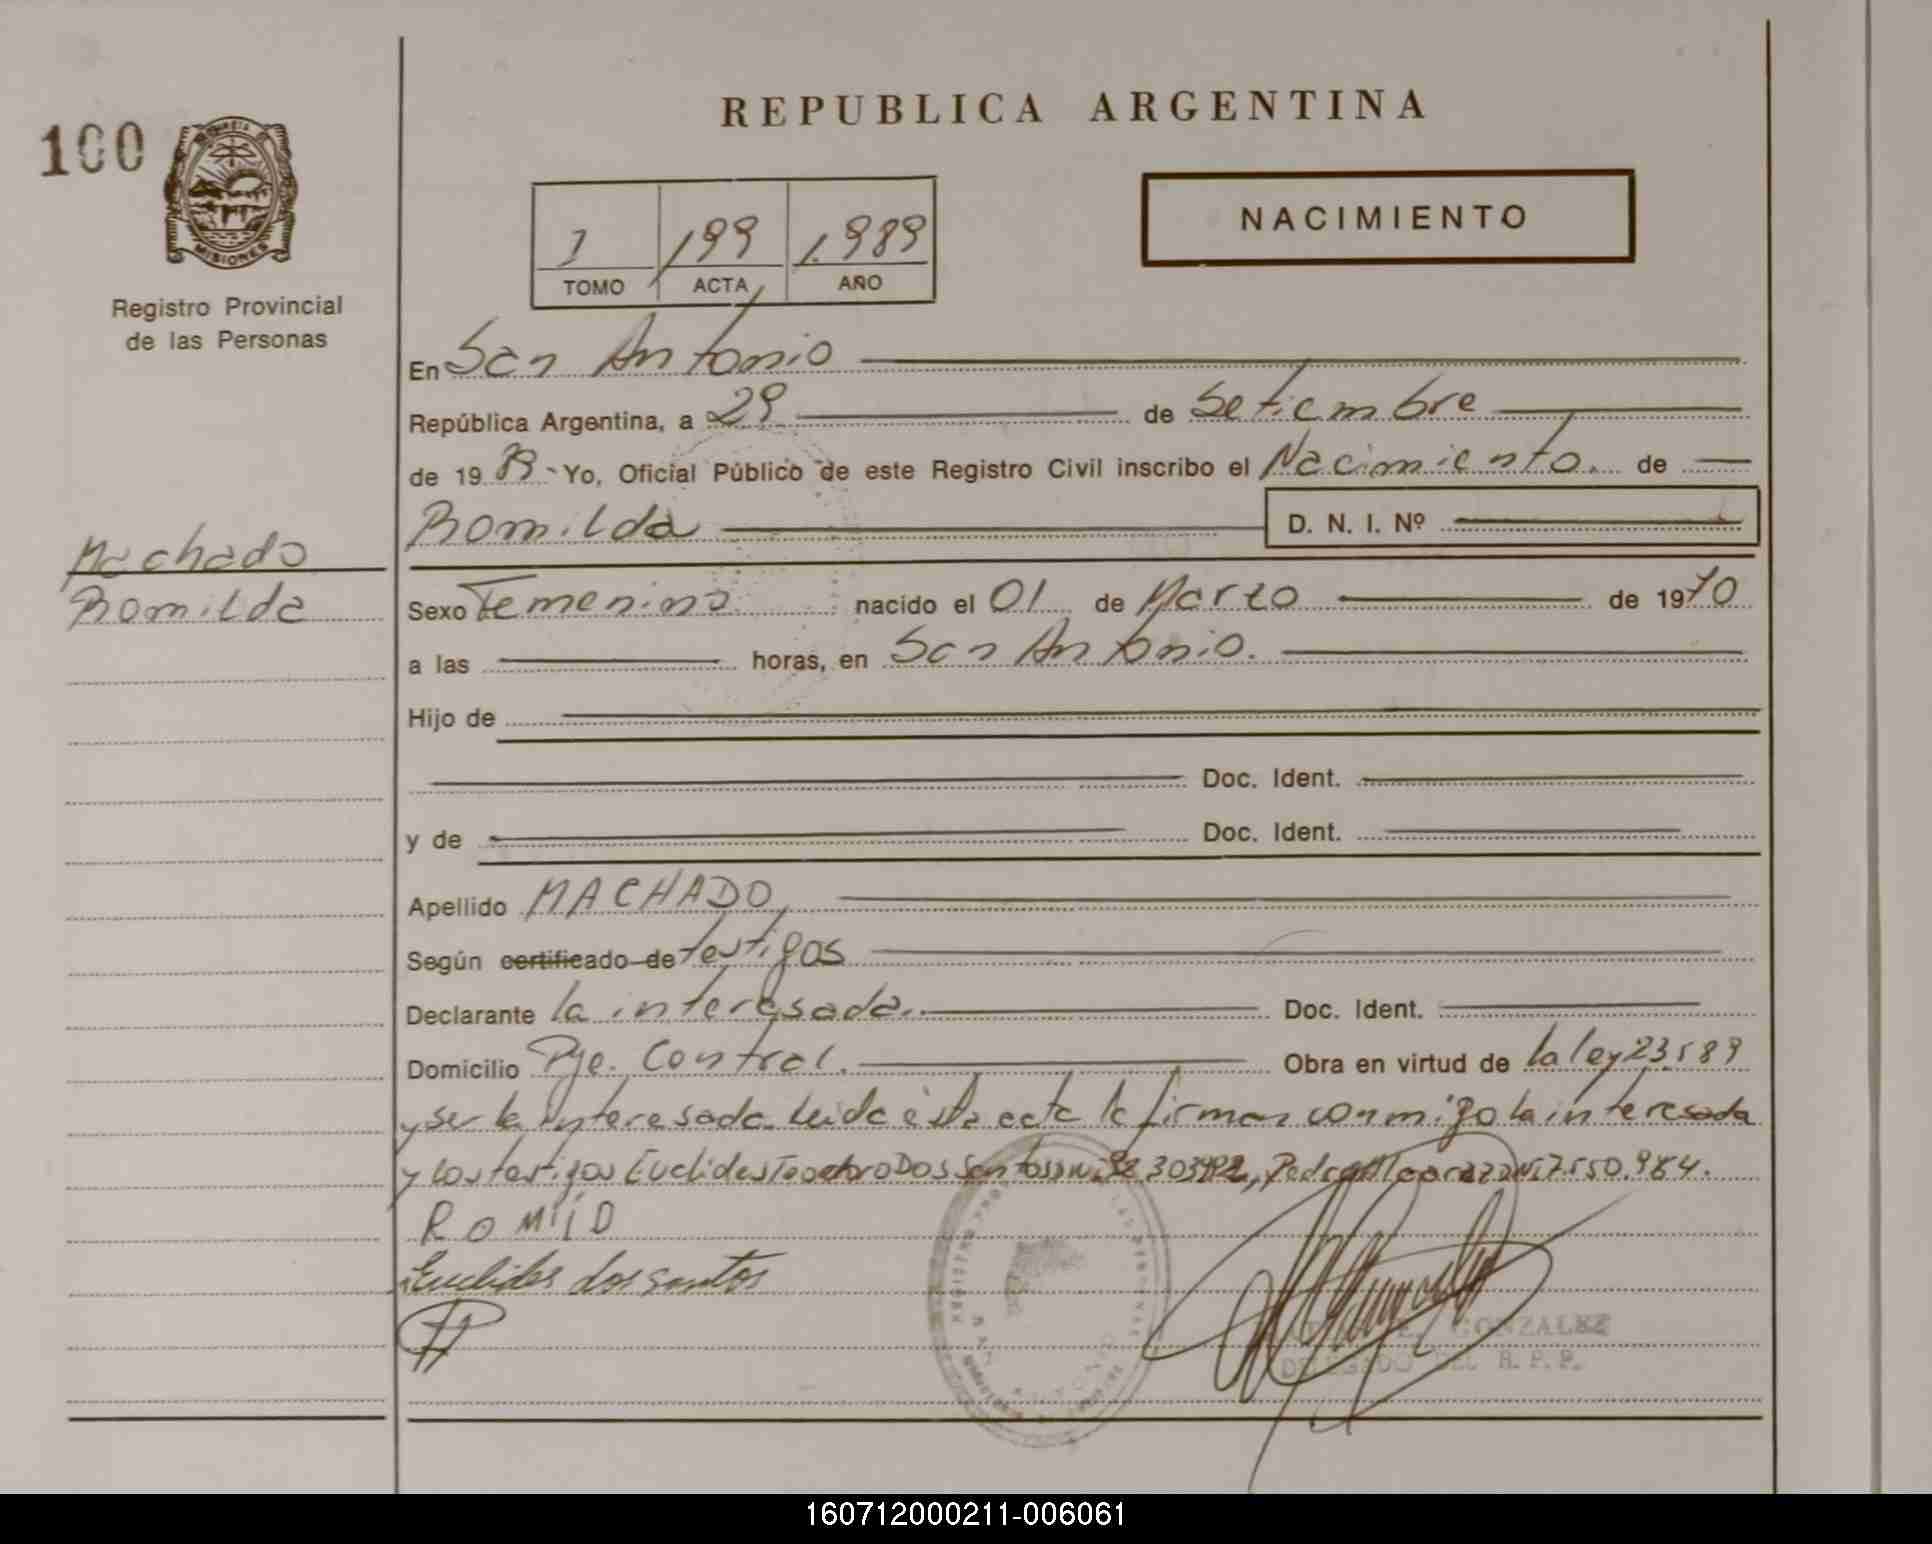 REPUBLICA ARGENTINA
100
MISIONES
Registro Provincial
de las Personas
1 199 1.989
TOMO ACTA AÑO
NACIMIENTO
En San Antonio
República Argentina, a 29 de Setiembre
de 1989 Yo, Oficial Público de este Registro Civil inscribo el Nacimiento. de
Romilda D. N. I. Nº
Machado
Romilda
Sexo Femenino nacido el 01 de Marzo de 1970
a las horas, en San Antonio.
Hijo de
Doc. Ident.
y de Doc. Ident.
Apellido MACHADO
Según certificado de testigos
Declarante la interesada. Doc. Ident.
Domicilio Pje. Control. Obra en virtud de la ley 23.589
y ser la interesada. Leida ésta acta la firman conmigo la interesada
y los testigos Euclides Teodoro Dos Santos 7.550.984.
ROMIID
Euclides dos santos
GONZALEZ
DELEGADO DEL R. P. P.
160712000211-006061